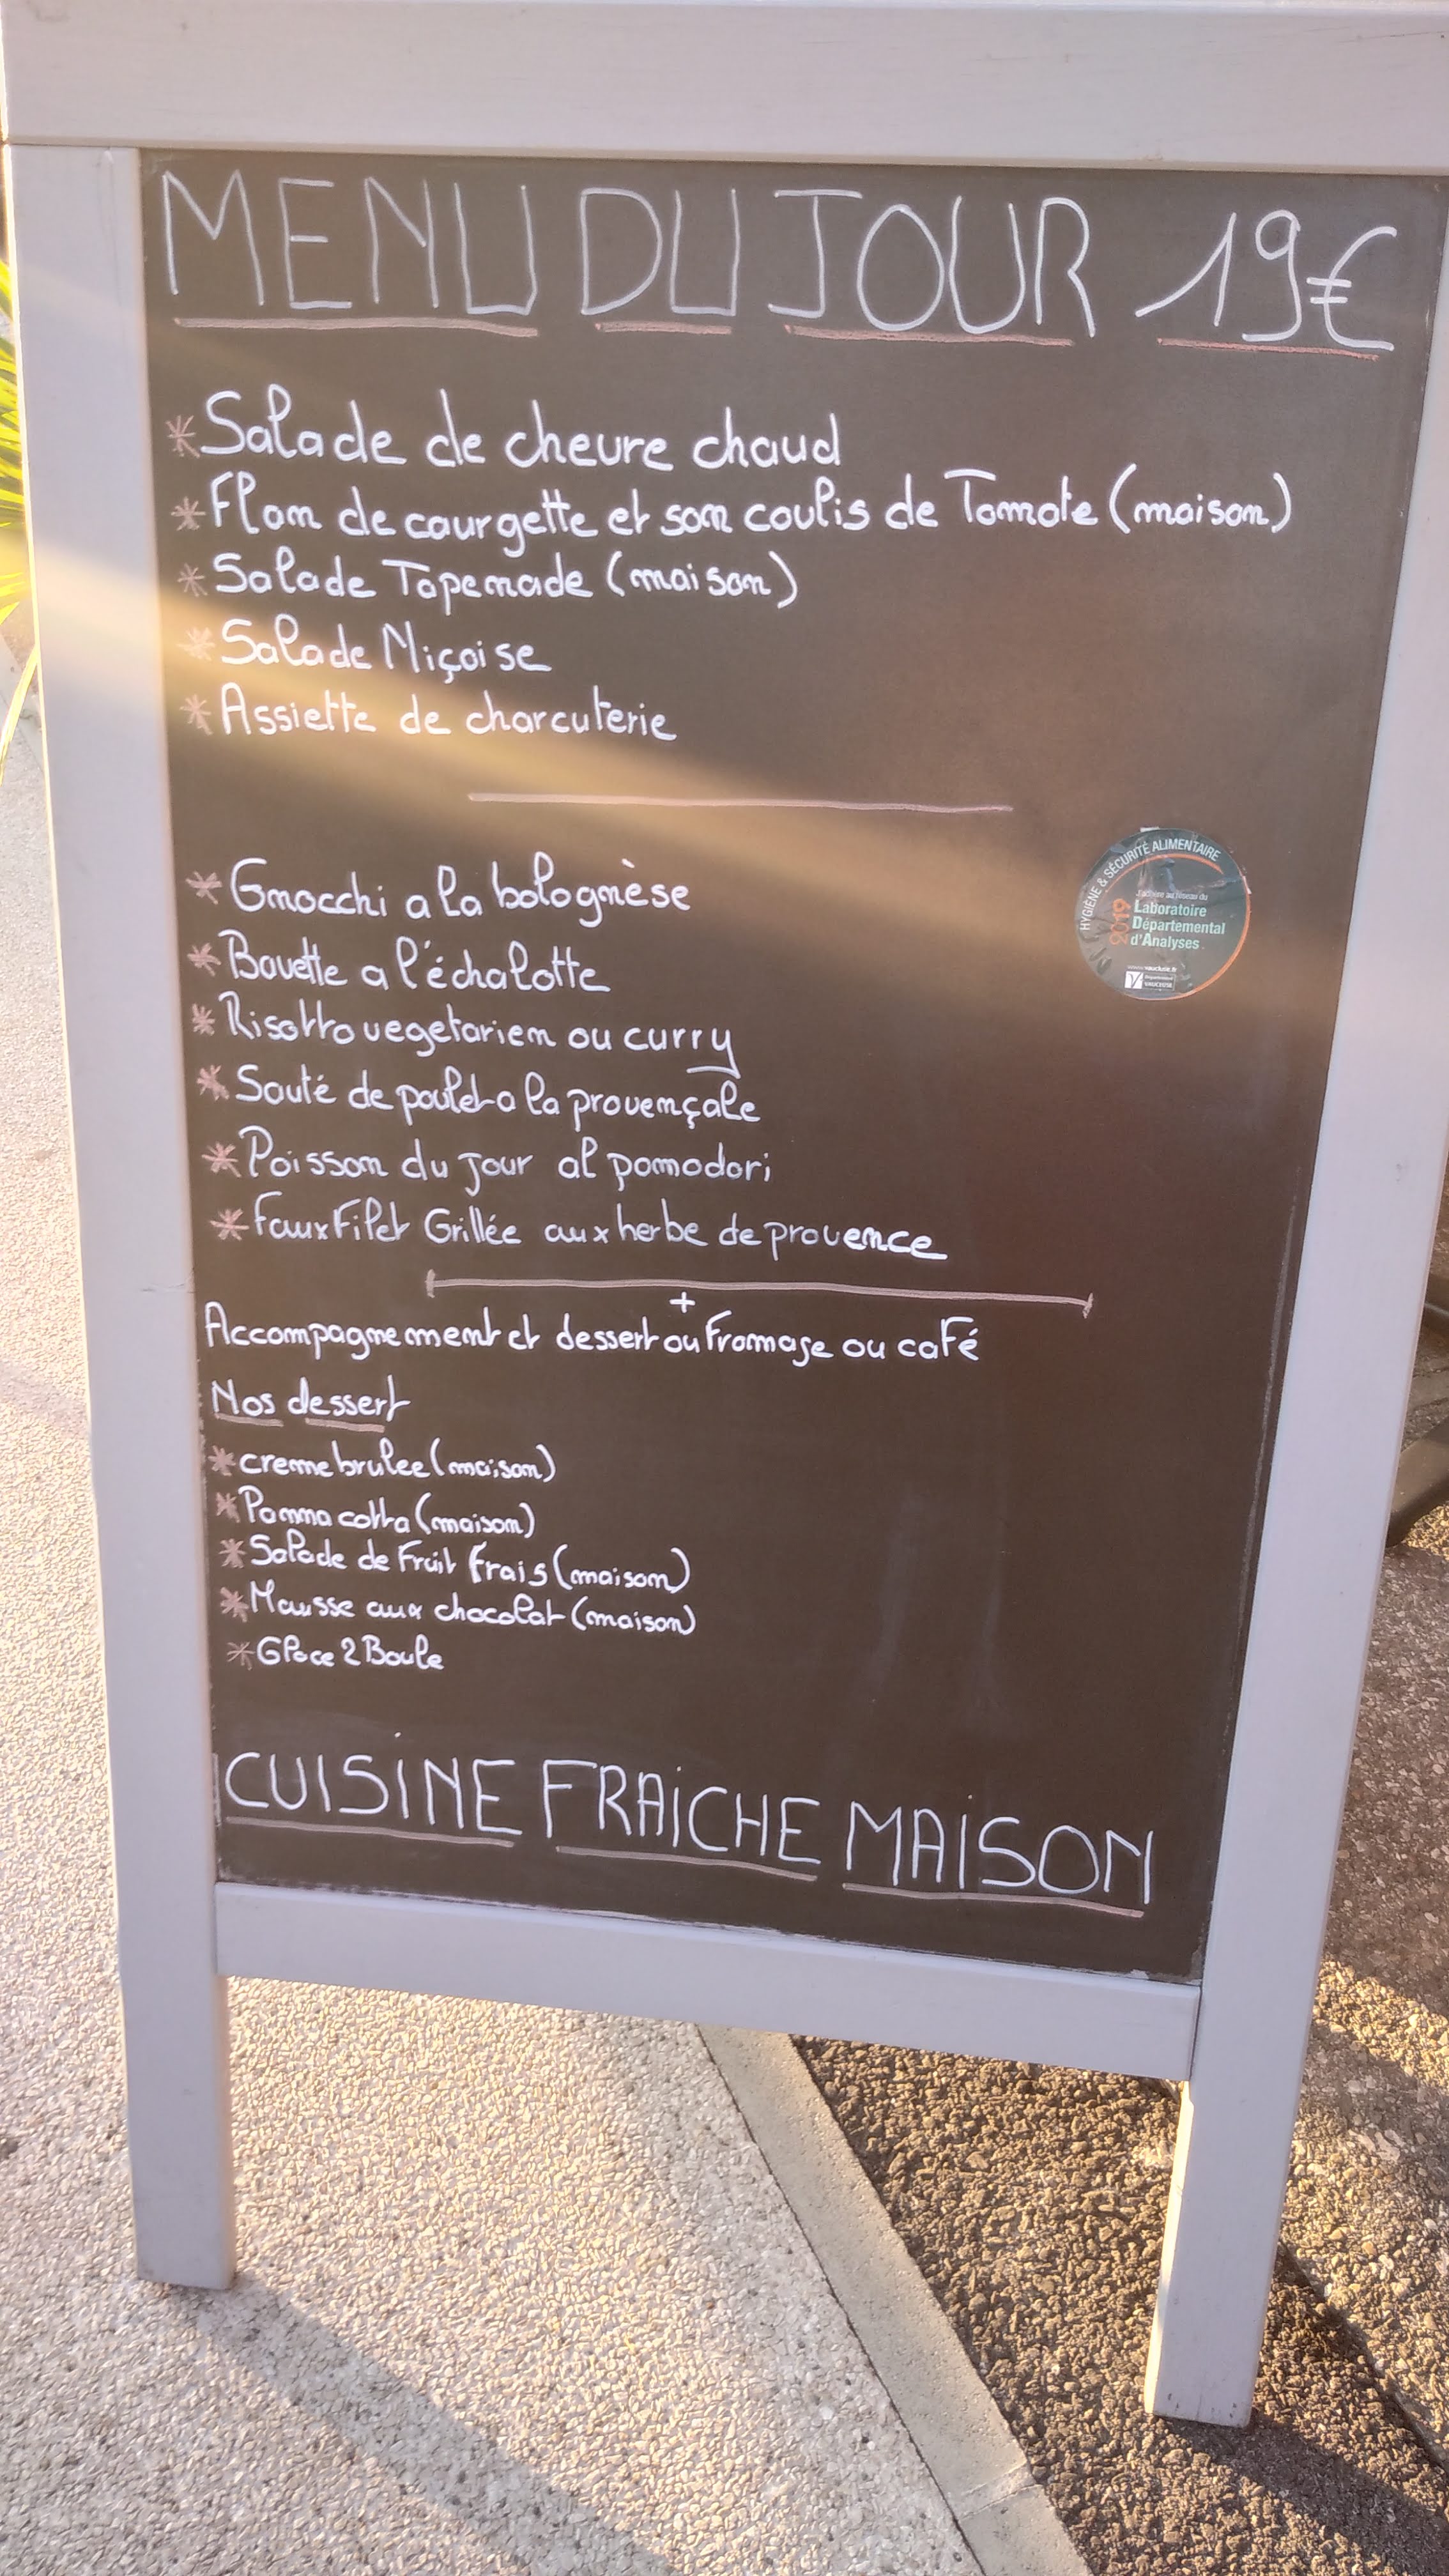 MENU DU JOUR 19€
* Salade de chevre chaud
* Flan de courgette et son coulis de Tomate (maison)
* Salade Tapenade (maison)
* Salade Niçoise
* Assiette de charcuterie
* Gnocchi a la bolognèse
* Bavette a l'échalotte
* Risotto vegetarien ou curry
* Sauté de poulet a la provençale
* Poisson du jour al pomodori
* Faux Filet Grillée aux herbe de provence
+
Accompagnement et dessert ou Fromage ou caFé
Nos dessert
* creme brulee (maison)
* Panna cotta (maison)
* Salade de Fruit Frais (maison)
* Mousse aux chocolat (maison)
* Glace 2 Boule
CUISINE FRAICHE MAISON
HYGIÈNE & SÉCURITÉ ALIMENTAIRE
2019
J'adhère au réseau du
Laboratoire
Départemental
d'Analyses
www.vaucluse.fr
Département
VAUCLUSE